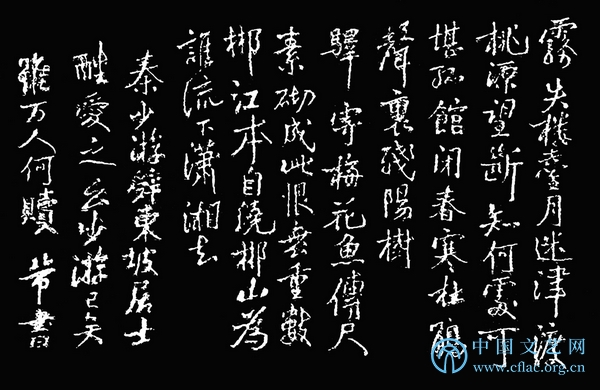 霧失樓臺月迷津渡
桃源望斷知何處可
堪孤館閉春寒杜鵑
聲裏殘陽樹
驛寄梅花魚傳尺
素砌成此恨無重數
郴江本自繞郴山為
誰流下瀟湘去
秦少游辭東坡居士
酷愛之云少游已矣
雖万人何贖 芾書
中国文艺网
www.cflac.org.cn